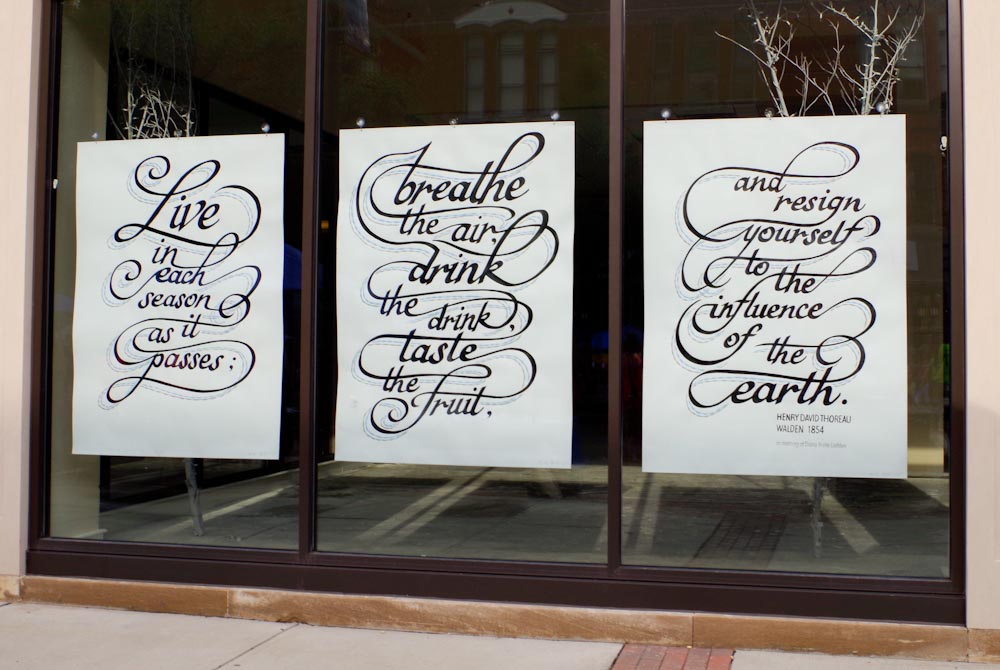 Live
in
each
season
as it
passes;
breathe
the air,
drink
the drink,
taste
the fruit,
and
resign
yourself
to the
influence
of the
earth.
HENRY DAVID THOREAU
WALDEN 1854
in memory of